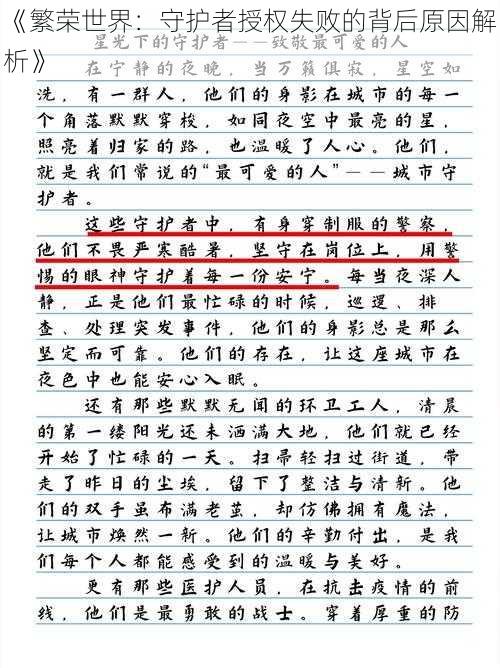 《繁荣世界：守护者授权失败的背后原因解
析》
星光下的守护者——致敬最可爱的人
在宁静的夜晚，当万籁俱寂，星空如
洗，有一群人，他们的身影在城市的每一
个角落默默穿梭，如同夜空中最亮的星，
照亮着归家的路，也温暖了人心。他们，
就是我们常说的“最可爱的人”——城市守
护者。
这些守护者中，有身穿制服的警察，
他们不畏严寒酷暑，坚守在岗位上，用警
惕的眼神守护着每一份安宁。每当夜深人
静，正是他们最忙碌的时候，巡逻、排
查、处理突发事件，他们的身影总是那么
坚定而可靠。他们的存在，让这座城市在
夜色中也能安心入眠。
还有那些默默无闻的环卫工人，清晨
的第一缕阳光还未洒满大地，他们就已经
开始了忙碌的一天。扫帚轻扫过街道，带
走了昨日的尘埃，留下了整洁与清新。他
们的双手虽布满老茧，却仿佛拥有魔法，
让城市焕然一新。他们的辛勤付出，是我
们每个人都能感受到的温暖与美好。
更有那些医护人员，在抗击疫情的前
线，他们是最勇敢的战士。穿着厚重的防